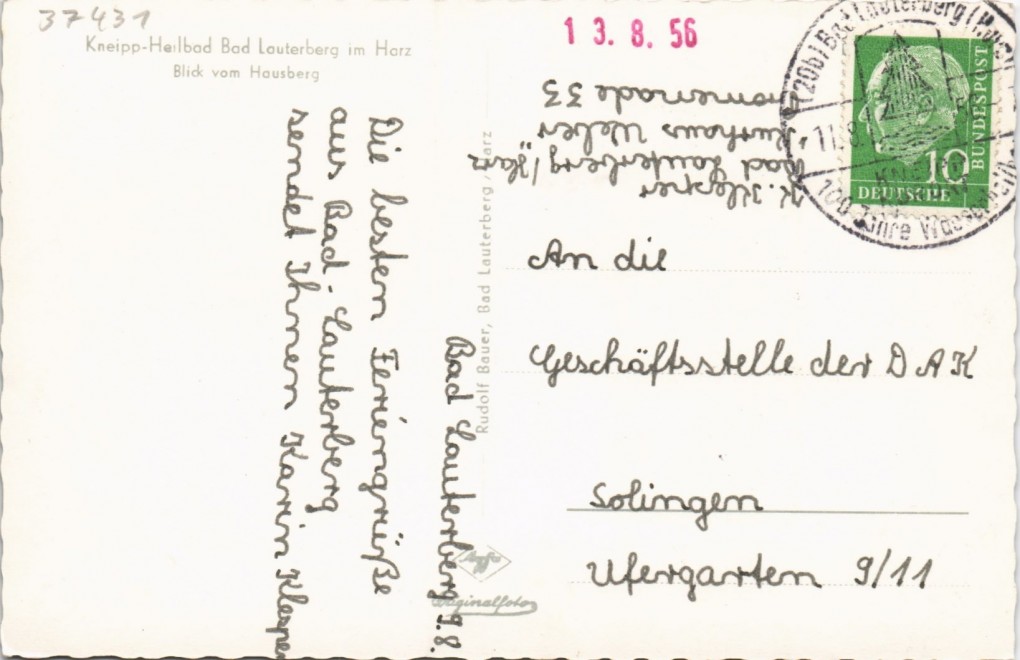 37431
Kneipp-Heilbad Bad Lauterberg im Harz
Blick vom Hausberg
13.8.56
K. Klesper
Bad Lauterberg/Harz
"Kurhaus Weber"
romenade 33
(20b) Bad Lauterberg (Harz)
11.8.
100 Jahre Wasser
DEUTSCHE
BUNDESPOST
10
Bad Lauterberg 9.8.
Die besten Feriengrüße
aus Bad-Lauterberg
sendet Ihnen Karin Klesper
Rudolf Bauer, Bad Lauterberg/Harz
An die
Geschäftsstelle der DAK
Solingen
Ufergarten 9/11
Agfa
Originalfoto